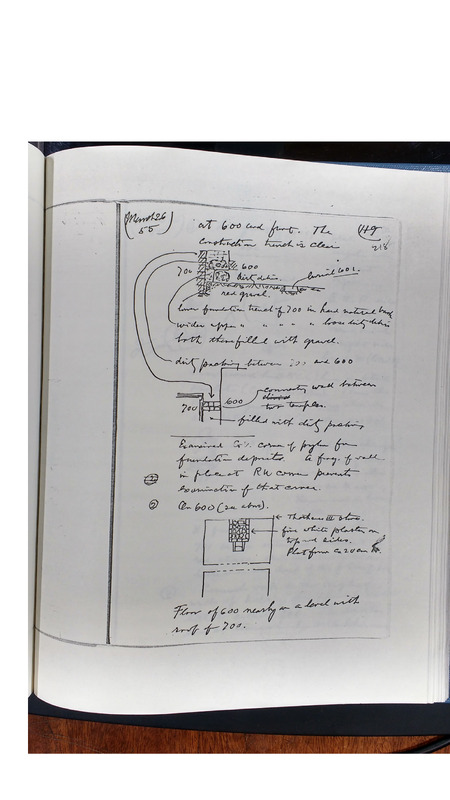 March 26
55
119
218
at 600 and front. The
construction trench is clear
700
600
dirt, debris.
burial 601.
red gravel.
lower foundation trench of 700 in hard natural
wider upper " " " " " loose dirty debris
both then filled with gravel.
dirty packing between 700 and 600
connecting wall between
two temples.
700
600
filled with dirty packing
Examined corner of pylon for
foundation deposits. A frag. of wall
in place at corner prevents
examination of that corner.
On 600 (see above).
Thothmes III stone.
fine white plaster on
top and sides.
Platform 20 cm
Floor of 600 nearly on a level with
roof of 700.